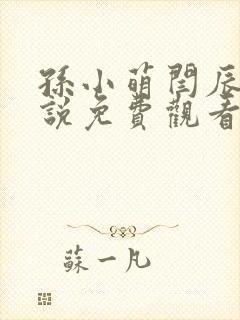 孫小萌閆辰
說免費觀看
蘇一凡